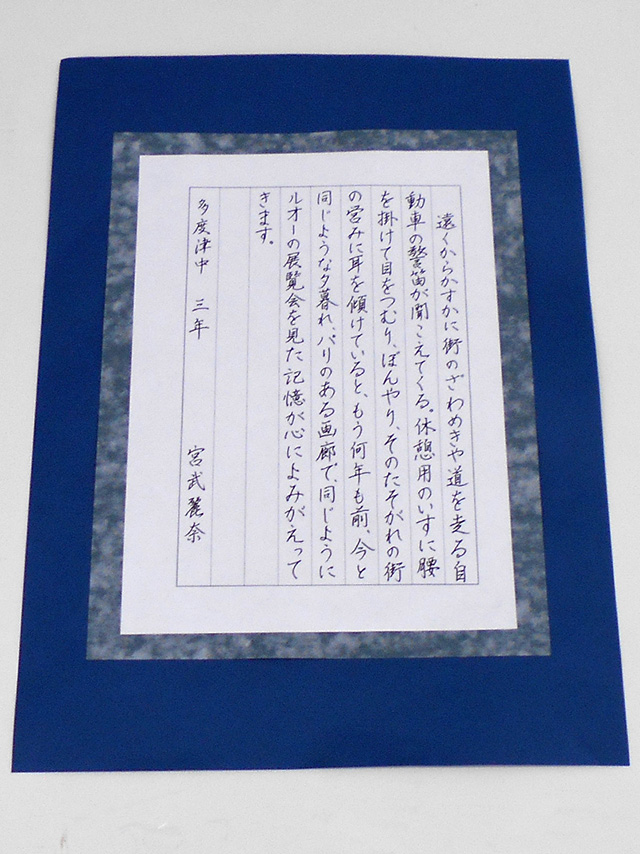 遠くからかすかに街のざわめきや道を走る自
動車の警笛が聞こえてくる。休憩用のいすに腰
を掛けて目をつむり、ぼんやり、そのたそがれの街
の営みに耳を傾けていると、もう何年も前、今と
同じような夕暮れ、パリのある画廊で、同じように
ルオーの展覧会を見た記憶が心によみがえって
きます。
多度津中 三年 宮武麗奈